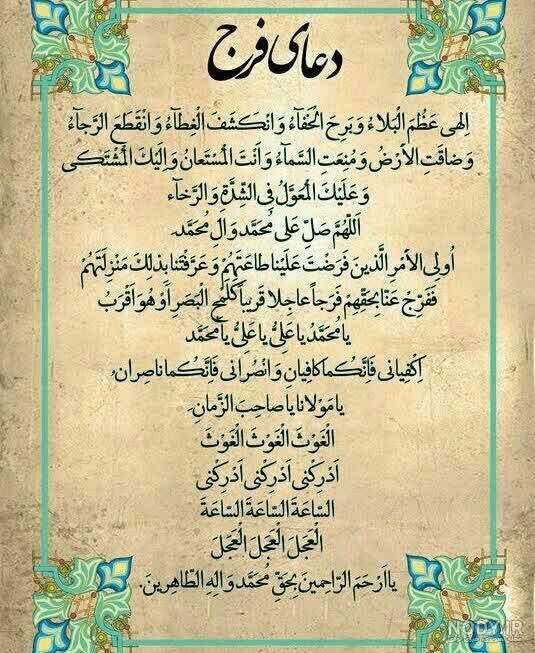 دعای فرج
اِلهی عَظُمَ الْبَلاءُ وَ بَرِحَ الْخَفآءُ وَ انْکَشَفَ الْغِطآءُ وَ انْقَطَعَ الرَّجآءُ
وَ ضاقَتِ الْأَرْضُ وَ مُنِعَتِ السَّمآءُ وَ اَنْتَ الْمُسْتَعانُ وَ اِلَیْكَ الْمُشْتَکی
وَ عَلَیْكَ الْمُعَوَّلُ فِی الشِّدَّةِ وَ الرَّخآءِ
اَللّهُمَّ صَلِّ عَلی مُحَمَّدٍ وَ الِ مُحَمَّدٍ.
اُولِی الْأَمْرِ الَّذینَ فَرَضْتَ عَلَیْنا طاعَتَهُمْ وَ عَرَّفْتَنا بِذلِكَ مَنْزِلَتَهُمْ
فَفَرِّجْ عَنّا بِحَقِّهِمْ فَرَجاً عاجِلاً قَریباً کَلَمْحِ الْبَصَرِ اَوْ هُوَ اَقْرَبُ
یا مُحَمَّدُ یا عَلِیُّ یا عَلِیُّ یا مُحَمَّد
اِکْفِیانی فَاِنَّکُما کافِیانِ وَ انْصُرانی فَاِنَّکُما ناصِرانِ,
یا مَوْلانا یا صاحِبَ الزَّمانِ.
الْغَوْثَ الْغَوْثَ الْغَوْثَ
اَدْرِکْنی اَدْرِکْنی اَدْرِکْنی
السّاعَةَ السّاعَةَ السّاعَةَ
الْعَجَلَ الْعَجَلَ الْعَجَلَ
یا اَرْحَمَ الرّاحِمینَ بِحَقِّ مُحَمَّدٍ وَ الِهِ الطّاهِرینَ.